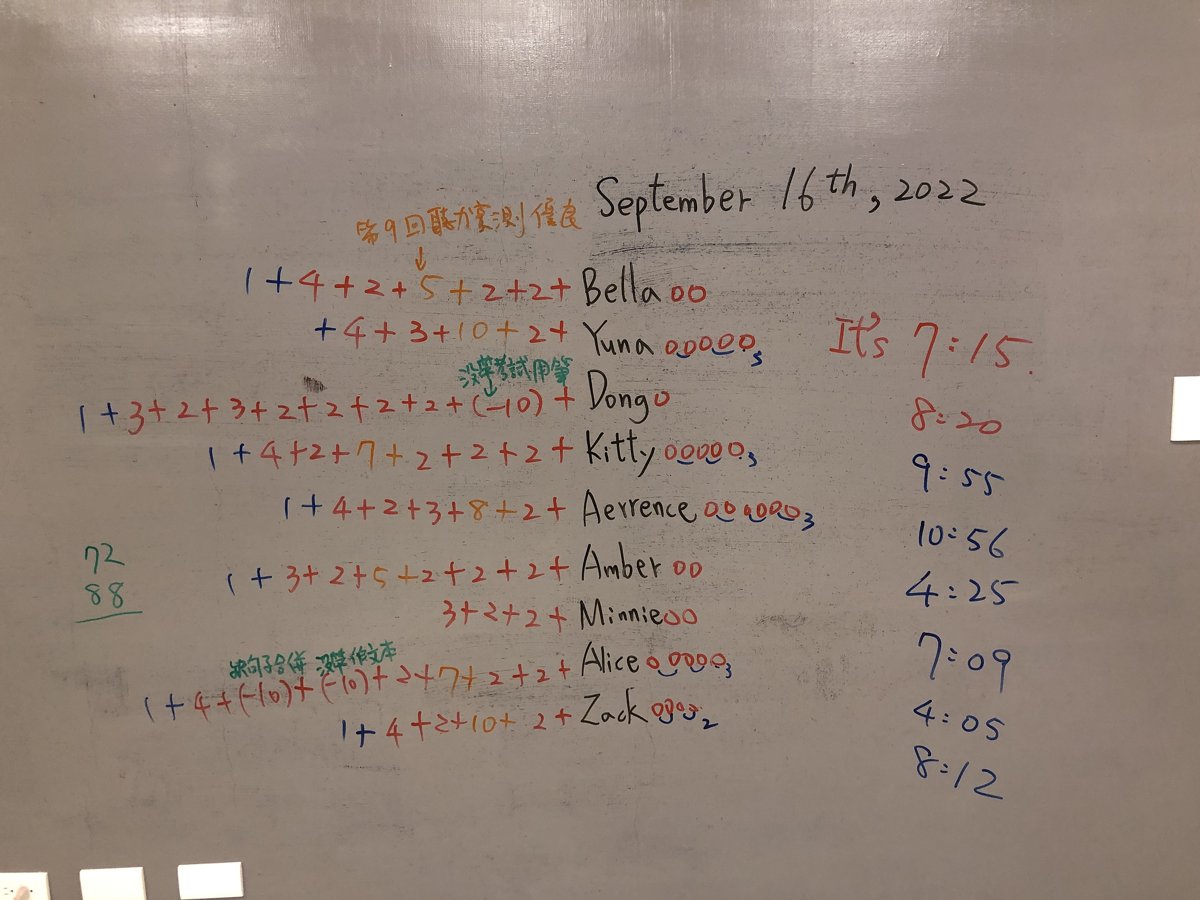 September 16th, 2022
第9回聽力素測優良
↓
1+4+2+5+2+2+ Bella OO
+4+3+10+2+ Yuna OOOOO
沒帶考試用筆
↓
1+3+2+3+2+2+2+2+(-10)+ Dong O
1+4+2+7+2+2+2+ Kitty OOOOO3
1+4+2+3+8+2+ Aerrence OOOOOO3
1+3+2+5+2+2+2+ Amber OO
3+2+2+ Minnie OO
缺句子合併 沒帶作文本
1+4+(-10)+(-10)+2+7+2+2+ Alice OOOOO3
1+4+2+10+2+ Zack OOOO2
72
88
It's 7:15.
8:20
9:55
10:56
4:25
7:09
4:05
8:12